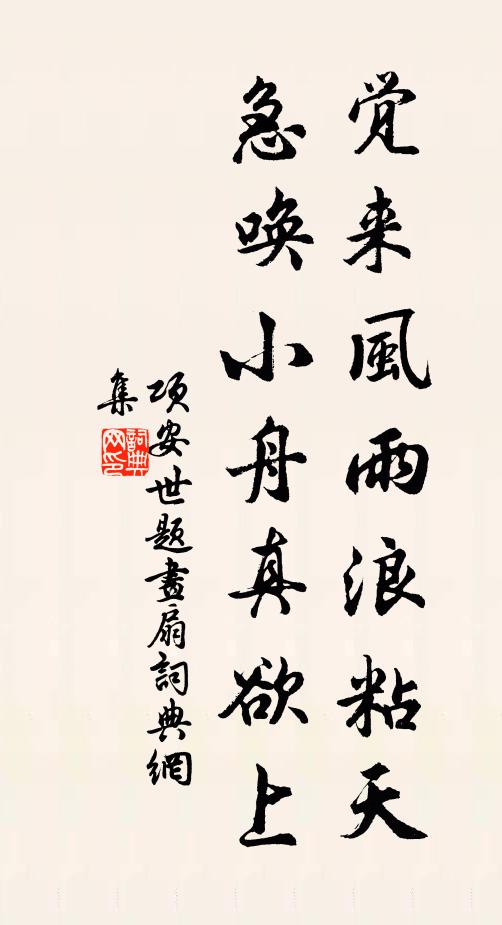 觉来風雨浪粘天
急唤小舟真欲上
项安世题畫扇詞典網
集
詞典
网印